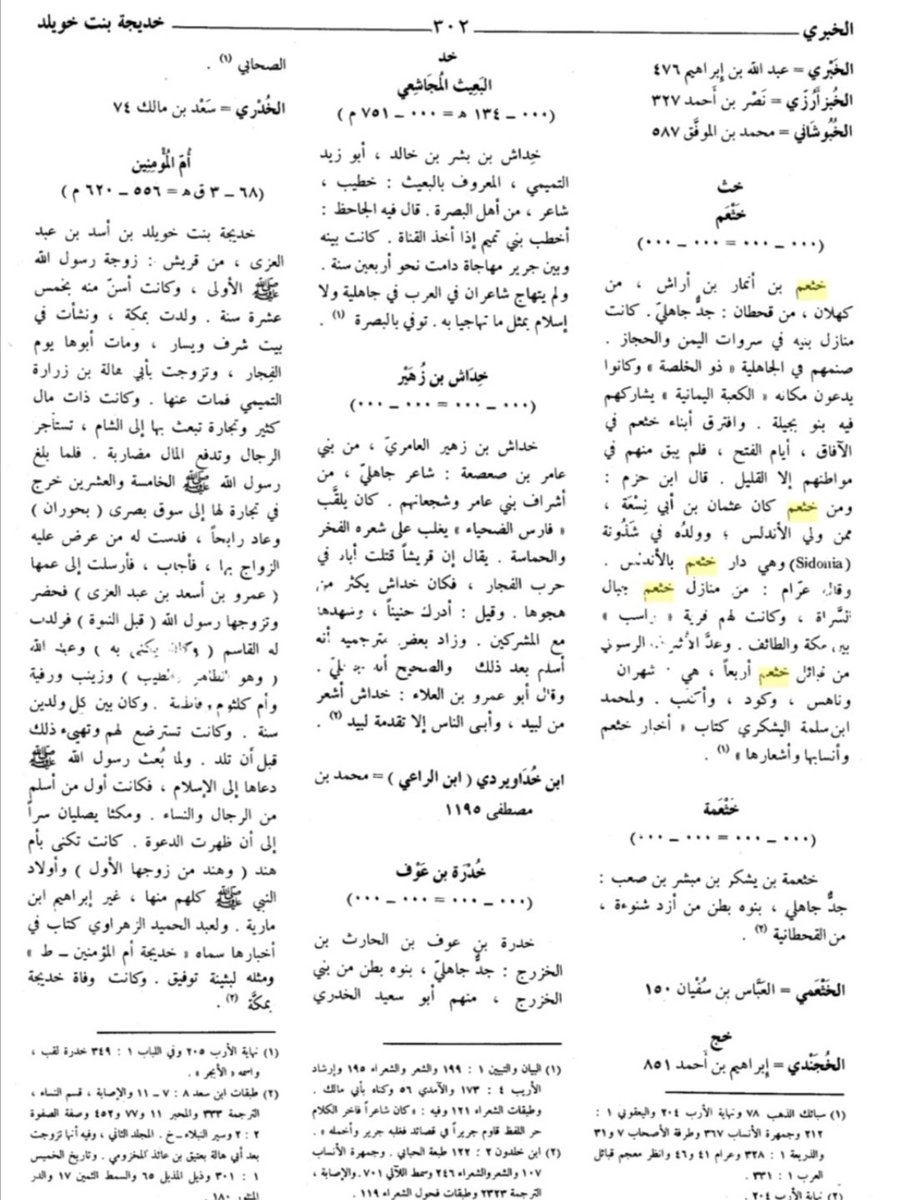 الخبري
٣٠٢
خديجة بنت خويلد
الخَبْري = عبد الله بن إبراهيم ٤٧٦
الخُبز أَرُزّي = نَصْر بن أَحمد ٣٢٧
الخُبُوشَاني = محمد بن الموفَّق ٥٨٧
خث
خَثْعَم
(٠٠٠ ــ ٠٠٠ = ٠٠٠ ــ ٠٠٠)
خثعم بن أنمار بن أراش ، من
كهلان ، من قحطان : جدٌّ جاهليّ . كانت
منازل بنيه في سروات اليمن والحجاز .
صنمهم في الجاهلية « ذو الخلصة » وكانوا
يدعون مكانه « الكعبة اليمانية » يشاركهم
فيه بنو بجيلة . وافترق أبناء خثعم في
الآفاق ، أيام الفتح ، فلم يبق منهم في
مواطنهم إلا القليل . قال ابن حزم :
ومن خثعم كان عثمان بن أبي نِسْعَة ،
ممن ولي الأندلس ؛ وولدُه في شَذُونة
(Sidonia) وهي دار خثعم بالأندلس .
وقال عرّام : من منازل خثعم جبال
السَّراة ، وكانت لهم قرية « راسب »
بين مكة والطائف . وعدَّ الأشرف الرسولي
من قبائل خثعم أربعاً ، هي : شهران
وناهس ، وكود ، وأكلب . ولمحمد
ابن سلمة اليشكري كتاب « أخبار خثعم
وأنسابها وأشعارها » (١) .
خَثْعَمة
(٠٠٠ ــ ٠٠٠ = ٠٠٠ ــ ٠٠٠)
خثعمة بن يشكر بن مبشر بن صعب :
جدٌّ جاهلي ، بنوه بطن من أزد شنوءة ،
من القحطانية (٢) .
الخَثْعَمي = العبَّاس بن سُفْيان ١٥٠
خج
الخُجَنْدي = إبراهيم بن أَحمد ٨٥١
(١) سبائك الذهب ٧٨ ونهاية الأرب ٢٠٤ واليعقوبي ١ :
٢١٢ وجمهرة الأنساب ٣٦٧ وطرفة الأصحاب ٧ و٣١
والذريعة ١ : ٣٢٨ وعرام ٤١ و٤٦ وانظر معجم قبائل
العرب ١ : ٣٣١ .
(٢) نهاية الأرب ٢٠٤ .
خد
البَعِيث المُجَاشِعي
(٠٠٠ ــ ١٣٤ هـ = ٠٠٠ ــ ٧٥١ م)
خِداش بن بشر بن خالد ، أبو زيد
التميمي ، المعروف بالبعيث : خطيب ،
شاعر ، من أهل البصرة . قال فيه الجاحظ :
أخطب بني تميم إذا أخذ القناة . كانت بينه
وبين جرير مهاجاة دامت نحو أربعين سنة .
ولم يتهاج شاعران في العرب في جاهلية ولا
إسلام بمثل ما تهاجيا به . توفي بالبصرة (١) .
خِدَاش بن زُهَيْر
(٠٠٠ ــ ٠٠٠ = ٠٠٠ ــ ٠٠٠)
خداش بن زهير العامريّ ، من بني
عامر بن صعصعة : شاعر جاهليّ ، من
أشراف بني عامر وشجعانهم . كان يلقَّب
« فارس الضحياء » يغلب على شعره الفخر
والحماسة . يقال إن قريشاً قتلت أباه في
حرب الفجار ، فكان خداش يكثر من
هجوها . وقيل : أدرك حنيناً ، وشهدها
مع المشركين . وزاد بعض مترجميه أنه
أسلم بعد ذلك والصحيح أنه جاهليّ .
وقال أبو عمرو بن العلاء : خداش أشعر
من لبيد ، وأبى الناس إلا تقدمة لبيد (٢) .
ابن خُدَاويردي ( ابن الراعي ) = محمد بن
مصطفى ١١٩٥
خُدْرَة بن عَوْف
(٠٠٠ ــ ٠٠٠ = ٠٠٠ ــ ٠٠٠)
خدرة بن عوف بن الحارث بن
الخزرج : جدٌّ جاهليّ ، بنوه بطن من بني
الخزرج ، منهم أبو سعيد الخدري
(١) البيان والتبيين ١ : ١٩٩ والشعر والشعراء ١٩٥ وإرشاد
الأريب ٤ : ١٧٣ والآمدي ٥٦ وكناه بأبي مالك .
وطبقات الشعراء ١٢١ وفيه : « كان شاعراً فاخر الكلام
حر اللفظ قاوم جريراً في قصائد فغلبه جرير وأخمله » .
(٢) ابن خلدون ٢ : ١٢٢ طبعة الحبابي . وجمهرة الأنساب
١٠٧ والشعر والشعراء ٢٤٦ وسمط اللآلي ٧٠١ . والإصابة ،
الترجمة ٢٣٢٣ وطبقات فحول الشعراء ١١٩ .
الصحابي (١) .
الخُدْري = سَعْد بن مالك ٧٤
أُمّ المُؤْمِنِين
(٦٨ ــ ٣ ق هـ = ٥٥٦ ــ ٦٢٠ م)
خديجة بنت خويلد بن أسد بن عبد
العزى ، من قريش : زوجة رسول الله
ﷺ الأولى ، وكانت أسنّ منه بخمس
عشرة سنة . ولدت بمكة ، ونشأت في
بيت شرف ويسار ، ومات أبوها يوم
الفِجار ، وتزوجت بأبي هالة بن زرارة
التميمي فمات عنها . وكانت ذات مال
كثير وتجارة تبعث بها إلى الشام ، تستأجر
الرجال وتدفع المال مضاربة . فلما بلغ
رسول الله ﷺ الخامسة والعشرين خرج
في تجارة لها إلى سوق بصرى ( بحوران )
وعاد رابحاً ، فدست له من عرض عليه
الزواج بها ، فأجاب ، فأرسلت إلى عمها
( عمرو بن أسعد بن عبد العزى ) فحضر
وتزوجها رسول الله ( قبل النبوة ) فولدت
له القاسم ( وكان يكنى به ) وعبد الله
( وهو الطاهر والطيب ) وزينب ورقية
وأم كلثوم وفاطمة . وكان بين كل ولدين
سنة . وكانت تسترضع لهم وتهيىء ذلك
قبل أن تلد . ولما بُعث رسول الله ﷺ
دعاها إلى الإسلام ، فكانت أول من أسلم
من الرجال والنساء . ومكثا يصليان سراً
إلى أن ظهرت الدعوة . كانت تكنى بأم
هند ( وهند من زوجها الأول ) وأولاد
النبي ﷺ كلهم منها ، غير إبراهيم ابن
مارية . ولعبد الحميد الزهراوي كتاب في
أخبارها سماه « خديجة أم المؤمنين ــ ط »
ومثله لبثينة توفيق . وكانت وفاة خديجة
بمكَّة (٢) .
(١) نهاية الأرب ٢٠٥ وفي اللباب ١ : ٣٤٩ خدرة لقب ،
واسمه « الأبجر » .
(٢) طبقات ابن سعد ٨ : ٧ ــ ١١ والإصابة ، قسم النساء ،
الترجمة ٣٣٣ والمحبر ١١ و٧٧ و٤٥٢ وصفة الصفوة
٢ : ٢ وسير النبلاء ــ خ . المجلد الثاني ، وفيه أنها تزوجت
بعد أبي هالة بعتيق بن عائذ المخزومي . وتاريخ الخميس
١ : ٣٠١ وذيل المذيل ٦٥ والسمط الثمين ١٧ والدر
المنثور ١٨٠ .